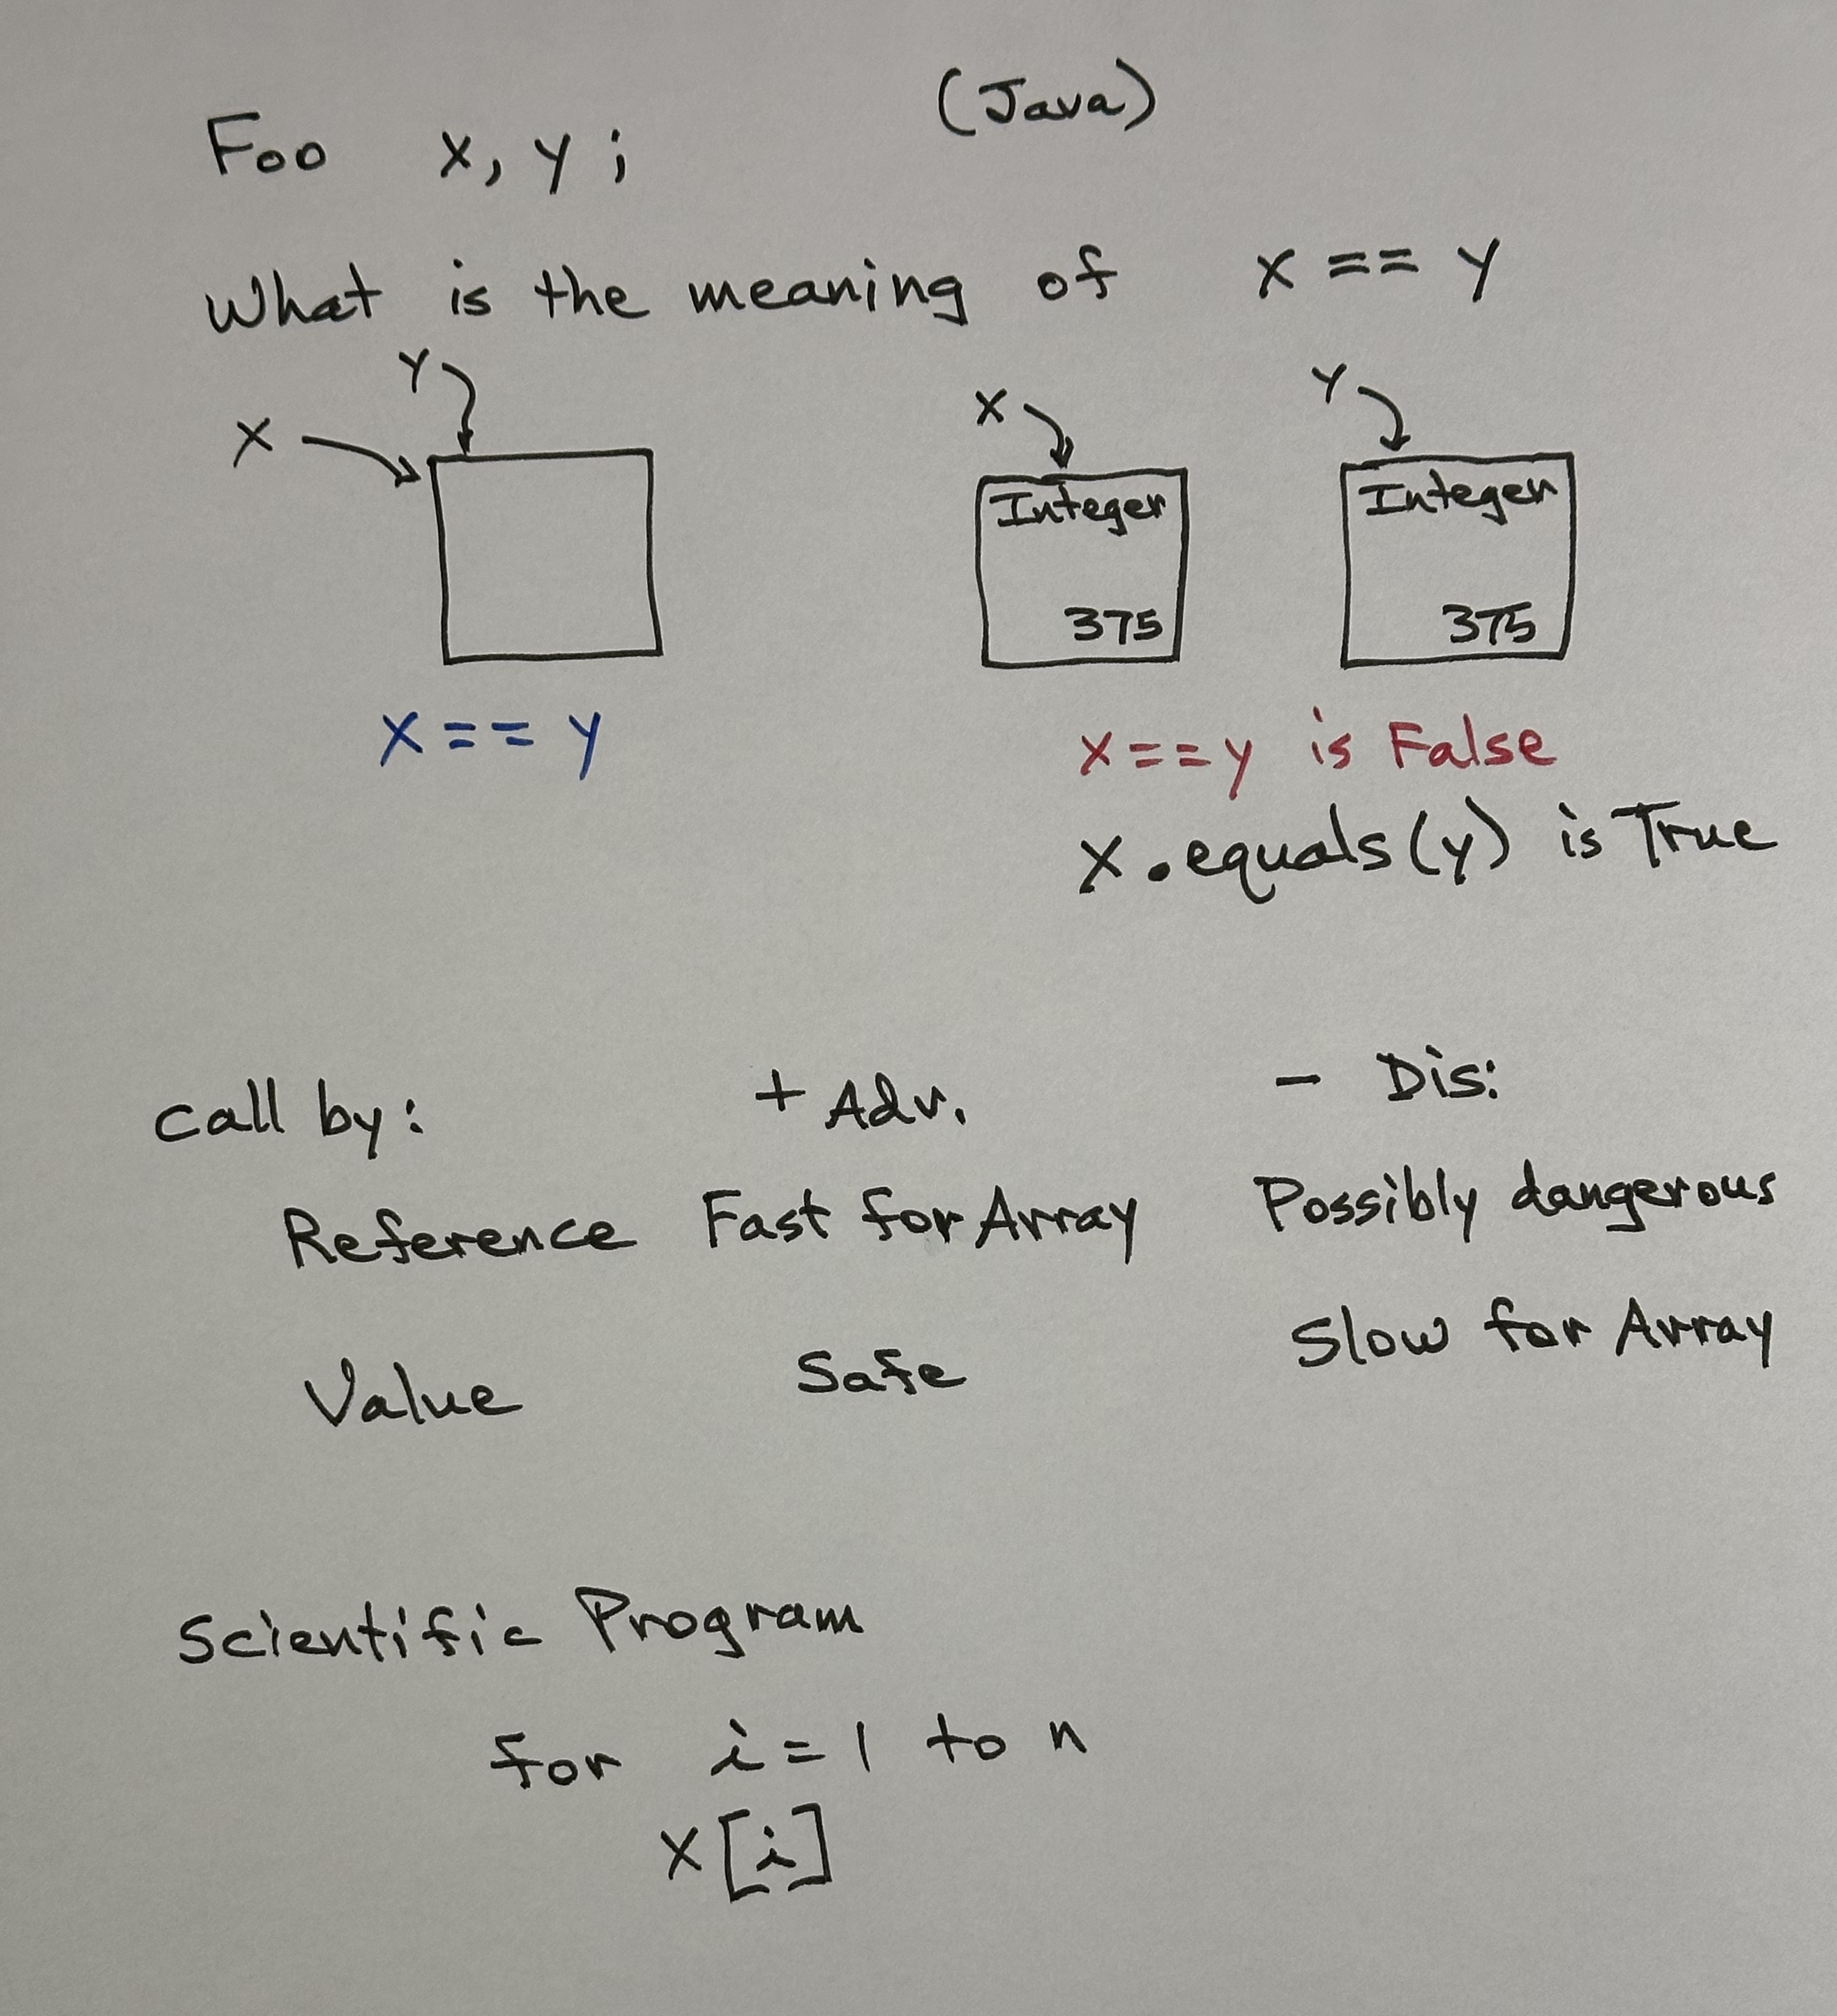 (Java)
Foo x, y ;
What is the meaning of x == y
Y
X
X
Y
Integer
375
Integer
375
X == Y
x == y is False
X.equals(y) is True
Call by: + Adv. - Dis:
Reference Fast for Array Possibly dangerous
Value Safe Slow for Array
Scientific Program
for i = 1 to n
x[i]